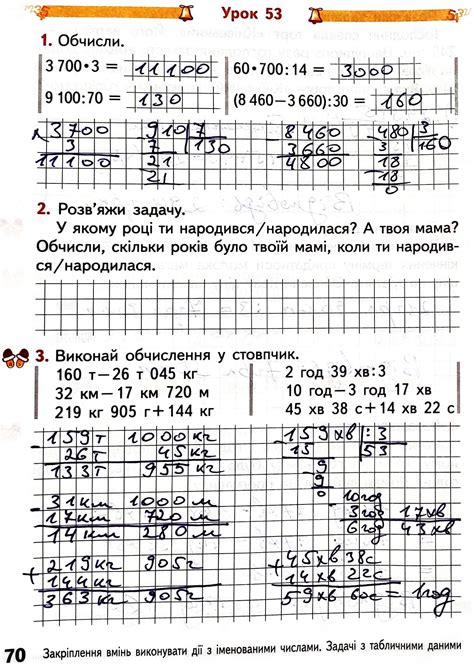 Урок 53
1. Обчисли.
3 700·3 = 11100 60·700:14 = 3000
9 100:70 = 130 (8 460−3 660):30 = 160
3700 910|7 8460 480|3
3 7 130 3660 3 160
11100 21 4800 18
21 18
0
2. Розв'яжи задачу.
У якому році ти народився/народилася? А твоя мама?
Обчисли, скільки років було твоїй мамі, коли ти народив-
ся/народилася.
3. Виконай обчислення у стовпчик.
160 т−26 т 045 кг 2 год 39 хв:3
32 км−17 км 720 м 10 год−3 год 17 хв
219 кг 905 г+144 кг 45 хв 38 с+14 хв 22 с
159т 1000кг 159хв :3
26т 45кг 15 53
133т 955кг 9
9
31км 1000м 0 10год
17км 720м 3год 17хв
14км 280м 6год 43хв
219кг 905г 45хв 38с
144кг 14хв 22с
363кг 905г 59хв 60с = 1год
70 Закріплення вмінь виконувати дії з іменованими числами. Задачі з табличними даними